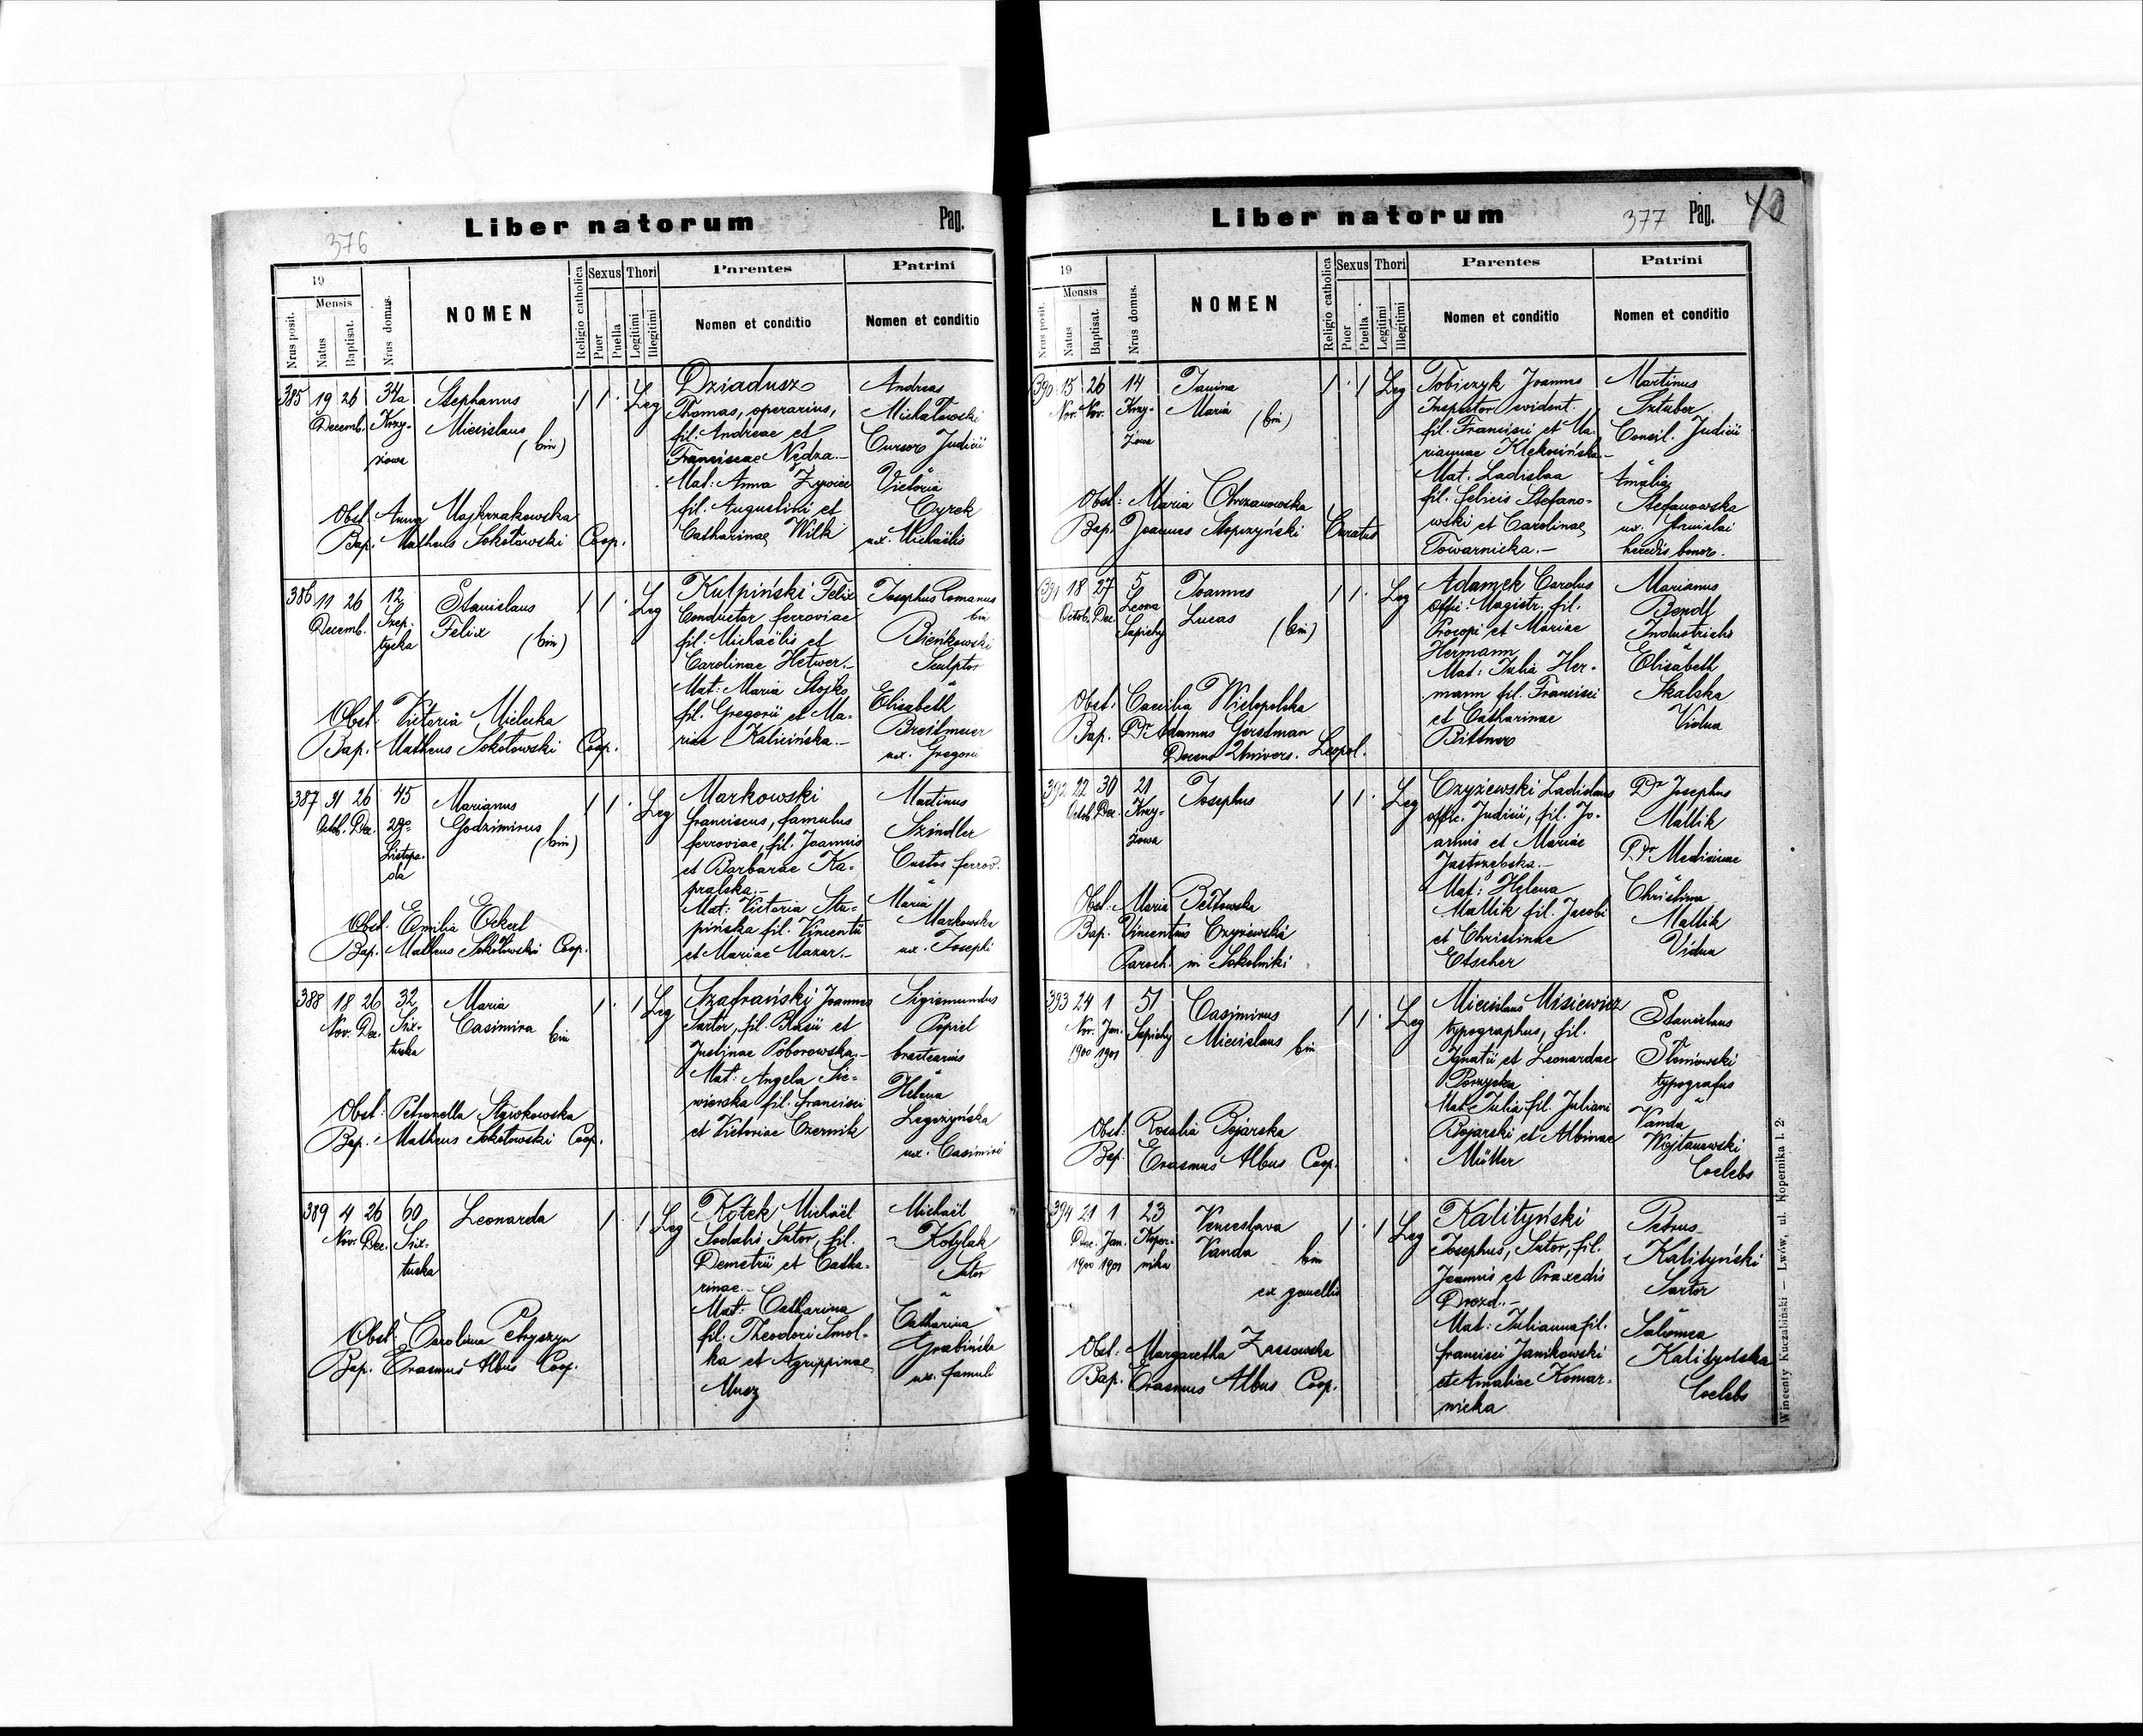 Liber natorum
Pag.
376
19
Mensis
Nrus posit.
Natus
Baptisat.
Nrus domus.
NOMEN
Religio catholica
Sexus
Puer
Puella
Thori
Legitimi
Illegitimi
Parentes
Nomen et conditio
Patrini
Nomen et conditio
385 19 26 34a
Decemb. Krzy-
żowa
Stephanus
Miecislaus
(bin)
1 1 Leg
Dziadusz
Thomas, operarius,
fil. Andreae et
Franciscae Nędza.-
Mat: Anna Żywiec
fil. Augustini et
Catharinae Wilk
Andreas
Michałowski
Cursor Judicii
Victoria
Cyrek
ux. Michaëlis
Obst: Anna Majkrzakowska
Bap. Matheus Sokołowski Coop.
386 11 26 12
Decemb. Szep-
tycka
Stanislaus
Felix (bin)
1 1 Leg
Kulpiński Felix
Conductor ferroviae
fil. Michaëlis et
Carolinae Hetwer.-
Mat: Maria Stojko
fil. Gregorii et Ma-
riae Kalicińska.-
Josephus Romanus
bin
Bieńkowski
Sculptor
Elisabeth
Breitmeier
ux. Gregorii
Obst: Victoria Mielecka
Bap. Matheus Sokołowski Coop.
387 31 26 45
Octob. Dec. 29go
Listopa-
da
Marianus
Godzimirus
(bin)
1 1 Leg
Markowski
Franciscus, famulus
ferroviae, fil. Joannis
et Barbarae Ka-
pralska.-
Mat: Victoria Stu-
pińska fil. Vincentii
et Mariae Mazur.-
Martinus
Szindler
Custos ferrov.
Maria
Markowska
ux. Josephi
Obst: Emilia Eckert
Bap. Matheus Sokołowski Coop.
388 18 26 32
Nov. Dec. Six-
tuska
Maria
Casimira bin
1 1 Leg
Szafrański Joannes
Sartor, fil. Blasii et
Justinae Poborowska.-
Mat: Angela Sie-
wierska fil. Francisci
et Victoriae Czernik
Sigismundus
Popiel
bractearius
Helena
Legeżyńska
ux. Casimiri
Obst: Petronella
Bap. Matheus Sokołowski Coop.
389 4 26 60
Nov. Dec. Six-
tuska
Leonarda
1 1 Leg
Kotek Michaël
Sodalis Sutor, fil.
Demetrii et Catha-
rinae.-
Mat: Catharina
fil. Theodori Smol-
ka et Agrippinae
Musz
Michaël
Kotylak
Sutor
Catharina
Grabińska
ux. famuli
Obst: Carolina Petryszyn
Bap. Erasmus Albus Coop.
Liber natorum
377 Pag. 40
19
Mensis
Nrus posit.
Natus
Baptisat.
Nrus domus.
NOMEN
Religio catholica
Sexus
Puer
Puella
Thori
Legitimi
Illegitimi
Parentes
Nomen et conditio
Patrini
Nomen et conditio
390 15 26 14
Nov. Nov. Krzy-
żowa
Janina
Maria (bin)
1 1 Leg
Tobiczyk Joannes
Inspector evident.
fil. Francisci et Ma-
riannae
Mat. Ladislaa
fil. Felicis Stefano-
wski et Carolinae
Towarnicka.-
Martinus
Sztuber
Consil. Judicii
Amalia
Stefanowska
ux.
heredis bonor.
Obst: Maria Chrzanowska
Bap. Joannes Stopczyński Curatus
391 18 27 5
Octob. Dec. Leona
Sapiehy
Joannes
Lucas (bin)
1 1 Leg
Adamek Carolus
offic. Magistr. fil.
Procopi et Mariae
Hermann
Mat: Julia Her-
mann fil. Francisci
et Catharinae
Bittner
Marianus
Bendl
Industrialis
Elisabeth
Skalska
Vidua
Obst: Caecilia Wielopolska
Bap. Dr Adamus Gerstman
Decens Univers. Leopol.
392 22 30 21
Octob. Dec. Krzy-
żowa
Josephus
1 1 Leg
Czyżewski Ladislaus
offic. Judicii, fil. Jo-
annis et Mariae
Jastrzębska.-
Mat: Helena
Mallik fil. Jacobi
et Christinae
Etscher
Dr Josephus
Mallik
Dr Medicinae
Christina
Mallik
Vidua
Obst: Maria Bełtowska
Bap. Vincentius Czyżewski
Paroch. in Sokolniki
393 24 1 51
Nov. Jan. Sapiehy
1900 1901
Casimirus
Miecislaus bin
1 1 Leg
Miecislaus Misiewicz
typographus, fil.
Ignatii et Leonardae
Porzycka
Mat: Julia fil. Juliani
Bojarski et Albinae
Müller
Stanislaus
Słoniowski
typografus
Vanda
Wojtanowski
Coelebs
Obst: Rosalia Bojarska
Bap. Erasmus Albus Coop.
394 21 1 23
Dec. Jan. Koper-
1900 1901 nika
Venceslava
Vanda bin
ex gemellis
1 1 Leg
Kalityński
Josephus, Sutor, fil.
Joannis et Praxedis
Drozd.-
Mat: Julianna fil.
Francisci Janikowski
et Amaliae Komar-
nicka
Petrus
Kalityński
Sartor
Salomea
Kalityńska
Coelebs
Obst: Margaretha Zassowska
Bap. Erasmus Albus Coop.
Wincenty Kuczabiński — Lwów, ul. Kopernika l. 2.